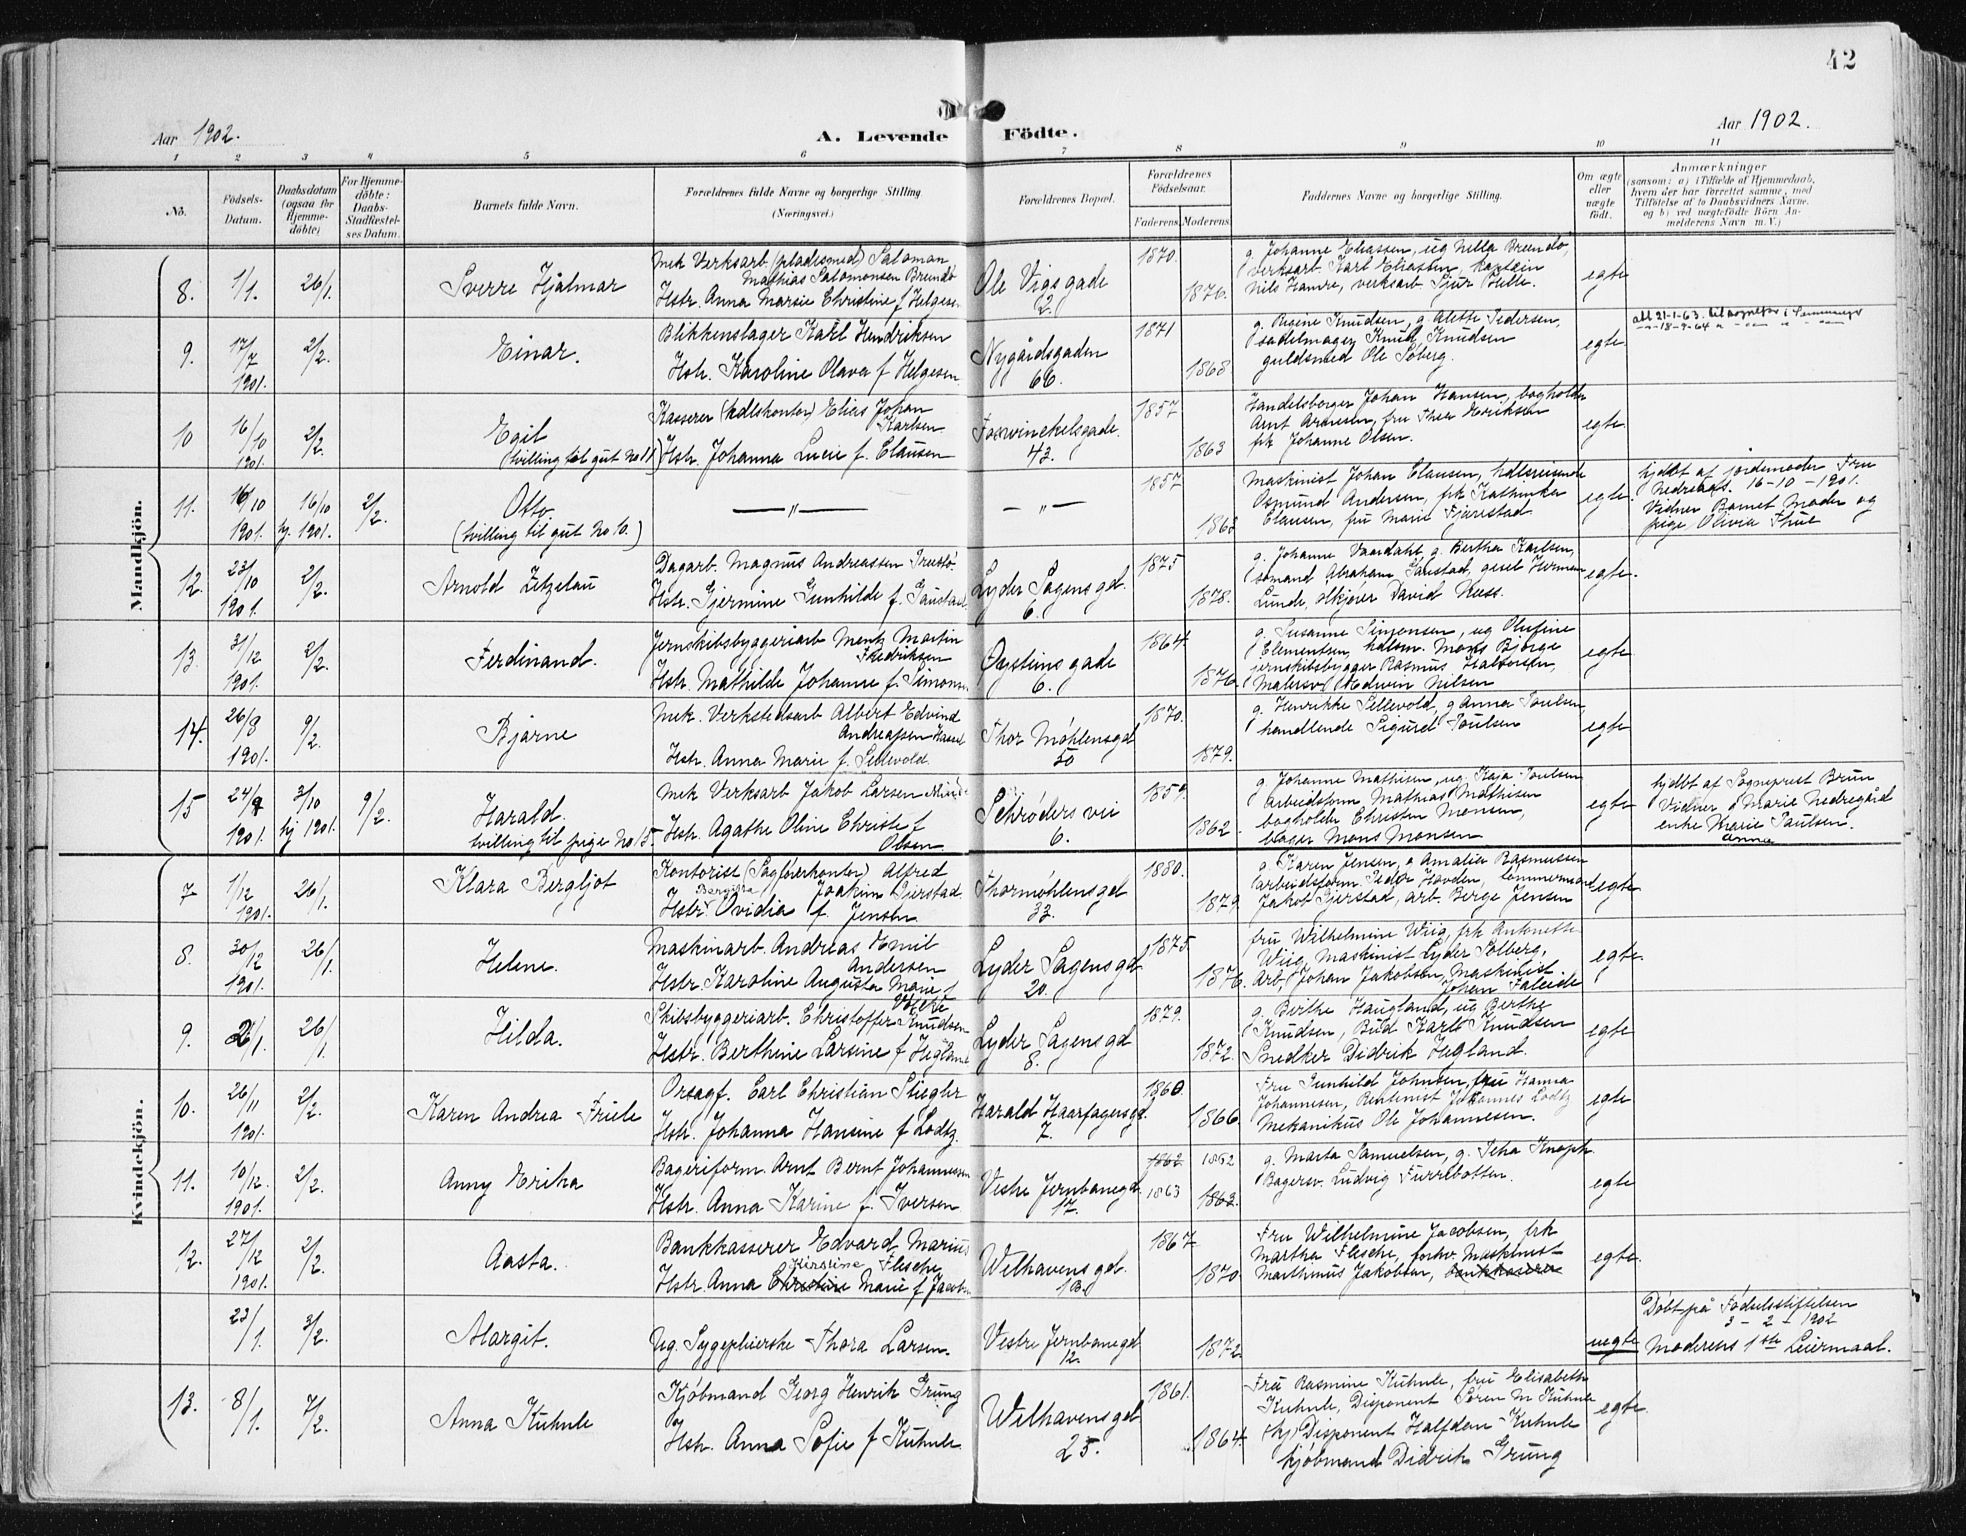 42
Aar 1902.
A. Levende Födte.
Aar 1902.
1 2 3 4 5 6 7 8 9 10 11
No.
Födsels-Datum.
Daabsdatum (ogsaa for Hjemmedöbte)
For Hjemmedöbte: Daabs-Stadfestelses Datum.
Barnets fulde Navn.
Forældrenes fulde Navne og borgerlige Stilling
(Næringsvei.)
Forældrenes Bopæl.
Forældrenes Födselsaar.
Faderens. Moderens.
Faddernes Navne og borgerlige Stilling.
Om ægte eller uægte födt.
Anmærkninger
(saasom: a) i Tilfælde af Hjemmedaab,
hvem der har forrettet samme, med
Tilföielse af to Daabsvidners Navne.
og b) ved uægtefödte Börn An-
melderens Navn m. V.)
Mandkjön.
8. 1/1. 26/1. Sverre Hjalmar
Mek Verksarb (pladesmed) Salomon
Mathias Salomonsen Brendö
Hstr. Anna Marsie Christine f Helgesen
Ole Vigs gade
12.
1870. 1876.
g. Johanne Eliassen, ug Nella Brendö,
verksarb. Karl Eliassen, kaptein
Nils Hamre, verksarb Sjur Helle.
egte
9. 17/7 1901. 2/2. Einar.
Blikkenslager Karl Hendriksen
Hstr. Karoline Olava f Helgesen
Nygårdsgaden
66.
1871 1868.
g. Regine Knudsen, g. Alette Pedersen,
sadelmager Knud Knudsen
guldsmed Ole Söberg.
egte.
att 21-1-63.
18-9-64
10 16/10 1901. 2/2. Egil
tvilling til gut No 11
Kasserer (hdlskontor) Elias Johan
Karlsen
Hstr. Johanna Lucie f. Clausen
Fosswinckelsgade.
43.
1857 1863
Handelsborger Johan Hansen, bogholder
Arnt Arnesen, fru Thea Eriksen
frk Johanne Olsen.
egte.
11. 16/10 1901. 16/10 hj. 1901. 2/2. Otto
(tvilling til gut No 10.)
— " —
— " —
1857. 1863
Maskinist Johan Clausen, hdlsreisende
Osmund Andersen, frk Kathinka
Clausen, fru Marie Fjærestad
egte
hjdöbt af jordemoder Fru
Nedreaas. 16-10-1901.
Vidner Barnet Moder og
pige Olivia Thue
12. 23/10 1901. 2/2. Arnold Zetzelau
Dagarb. Magnus Andreassen
Hstr. Gjermine Gunhilde f.
Lyder Sagens gd.
6.
1875 1878.
g. Johanne Vaardahl, g. Bertha Karlsen,
sömand Abraham
Lunde, ölkjörer David Ness.
egte.
13. 31/12 1901. 2/2. Ferdinand.
Jernskibsbyggeriarb Mentz Martin
Fredriksen
Hstr. Mathilde Johanne f. Simonsen
Øysteins gade
6.
1864. 1876.
g. Susanne Simonsen, ug Olufine
Clementsen, hdlsm. Mons Bjorge
jernskibsbygger Rasmus Halvorsen,
Malersv. Edvin Nilsen
egte
14. 26/8 1901. 9/2. Bjarne
Mek. Verkstedsarb Albert Edvind
Andreassen
Hstr. Anna Marie f. Sellevold.
Thor Møhlensgd
50
1870. 1879.
g. Henrikke Sellevold, g Anna Poulsen
handlende Sigurd Poulsen
egte
15 24/9 1901. 3/10 hj 1901. 9/2. Harald.
tvilling til pige No 15.
Mek Verksarb Jakob Larsen Minde
Hstr. Agathe Oline Christe f
Olsen
Schröders vei
6.
1859. 1862.
g. Johanne Mathisen, ug. Kaja Poulsen
arbeidsform. Mathias Mathisen
bogholder Christen Monsen,
Mons Monsen
egte
hjdöbt af Sogneprest Brun
Vidner Marie Nedregård
enke Marie Paulsen.
Anna
Kvindekjön.
7 1/12 1901. 26/1. Klara Bergljot
Kontorist (Sagförerkontor) Alfred
Joakim Gjerstad
Hstr. Ovidia f. Jensen
Thormøhlensgd
33.
1880. 1879.
g Karen Jensen, g Amalia Rasmussen
arbeidsform. Peder Hovden, tommermand
Jakob Gjerstad, arb. Berge Jensen
egte
8. 30/12 1901. 26/1. Helene.
Maskinarb. Andreas Emil
Andersen
Hstr. Karoline Augusta Marie f
Lyder Sagens gd
20.
1875. 1876.
fru Wilhelmine Wiig, frk Antonette
Wiig, Maskinist Lyder Solberg,
Arb. Johan Jakobsen, Maskinist
Johan Faleide
egte.
9. 2/1. 26/1 Hilda.
Skibsbyggeriarb. Christoffer Knudsen
Hstr. Berthine Larsine f Hegland
Lyder Sagens gd
8.
1879. 1872.
g. Berthe Haugland, ug Berthe
Knudsen, Bud Karl Knudsen
Snedker Didrik Hegland.
egte
10. 26/11 1901. 2/2. Karen Andrea Friele
Orsagf. Carl Christian Stiegler
Hstr. Johanna Hansine f Lodtz.
Harald Haarfagersgd.
7.
1860. 1866.
Fru Gunhild Johnsen, fru Hanna
Johannesen, Rentenist Johannes Lodtz
Mekanikus Ole Johannesen.
egte
11. 10/12. 1901. 2/2. Anny Erika
Bageriform. Arnt Bernt Johannessen
Hstr. Anna Karine f. Iversen
Vestre Jernbanegd.
17.
1862 1863 1862 1863.
g. Marta Samuelsen, g. Knoph
Bagersv. Ludvig Furrebotten.
egte
12. 27/12 1901. 2/2. Aasta.
Bankkasserer Edvard Marius
Kirstine Flesche
Hstr. Anna Christine Marie f. Jacobsen
Welhavens gd.
1867 1870
Fru Wilhelmine Jacobsen, frk
Martha Flesche, forhv. Maskinist
Marthinus Jakobsen, bankkasserer
egte.
23/1. 3/2. Margit.
Ug. Sygepleierske Thora Larsen.
Vestre Jernbanegd
12.
1872.
uegte
Döbt på Födselsstiftelsen
3-2-1902
Moderens 1ste Leiermaal.
13. 8/1. 7/2. Anna Kuhnle
Kjøbmand Georg Henrik Grung
Hstr. Anna Sofie f Kuhnle
Welhavens gd
25.
1861. 1864.
Fru Rasmine Kuhnle, fru Elisabeth
Kuhnle, Disponent Sören M Kuhnle
Disponent Halfdan Kuhnle
kjøbmand Didrik Grung
egte.